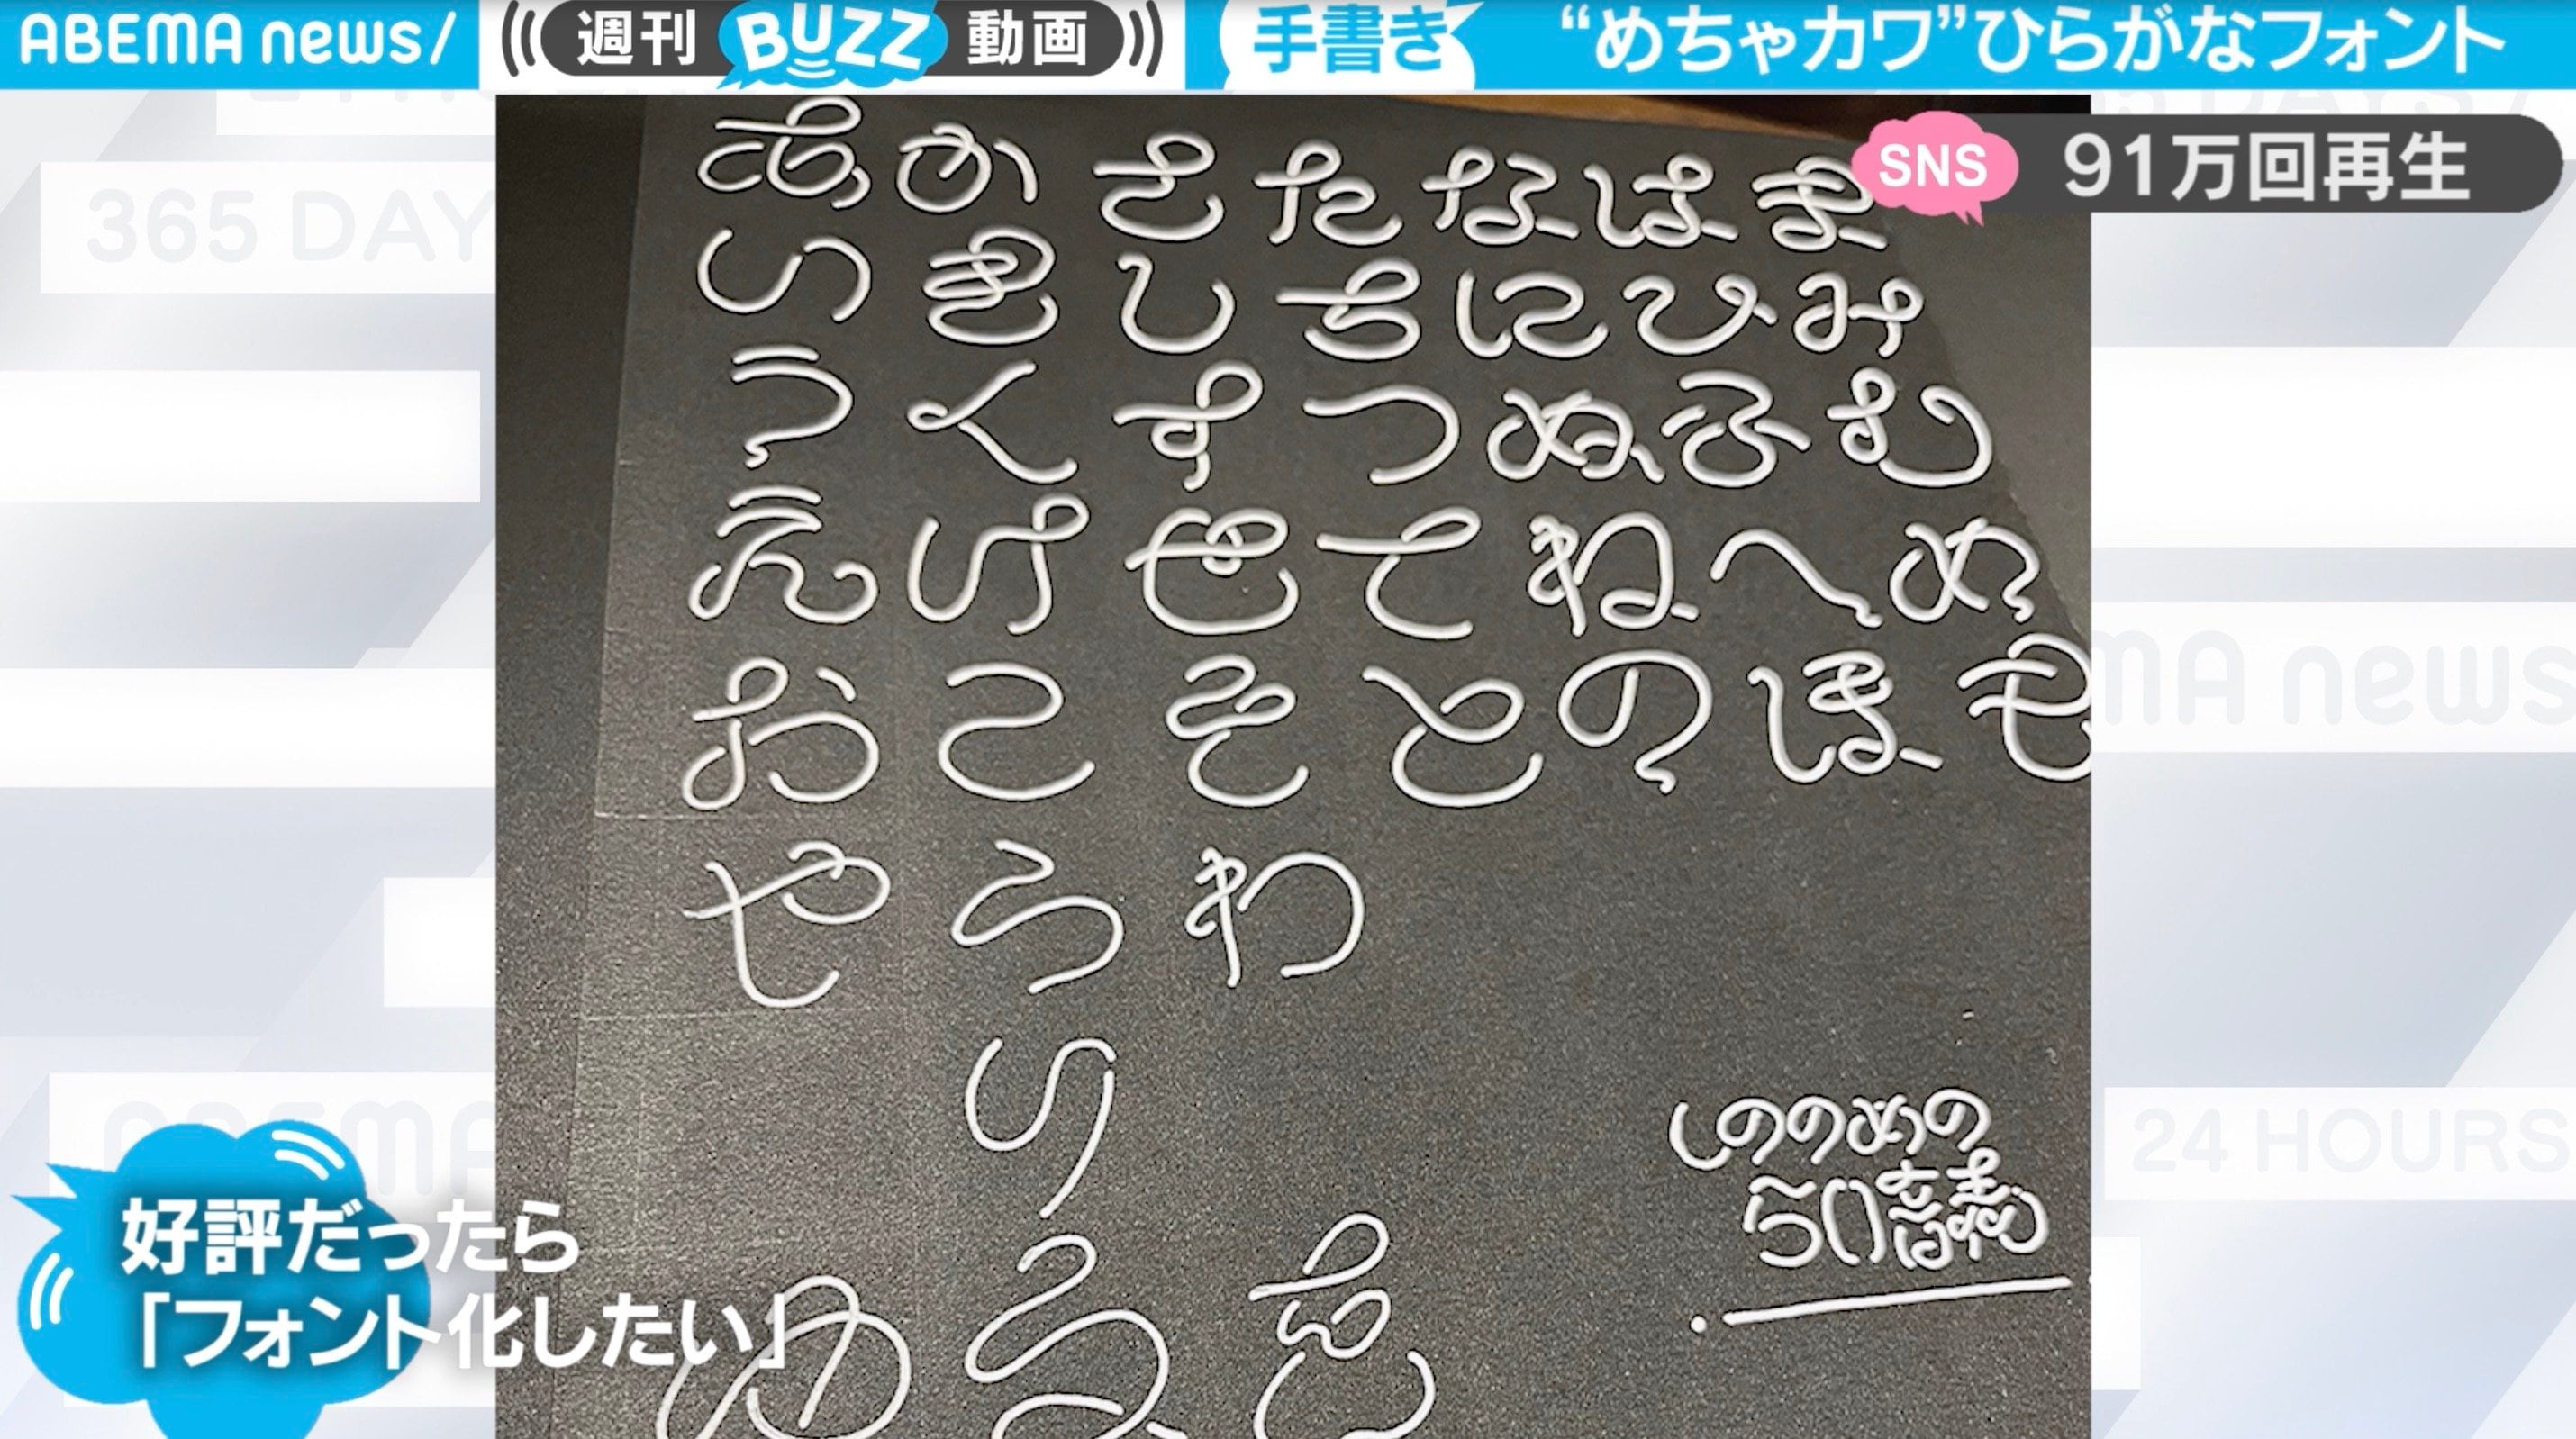 ABEMA news/
週刊 BUZZ 動画
手書き “めちゃカワ”ひらがなフォント
SNS 91万回再生
あかさたなはま
いきしちにひみ
うくすつぬふむ
えけせてねへめ
おこそとのほも
やらわ
り
ゆるを
しののめの
50音講
好評だったら
「フォント化したい」
365 DAY
24 HOURS